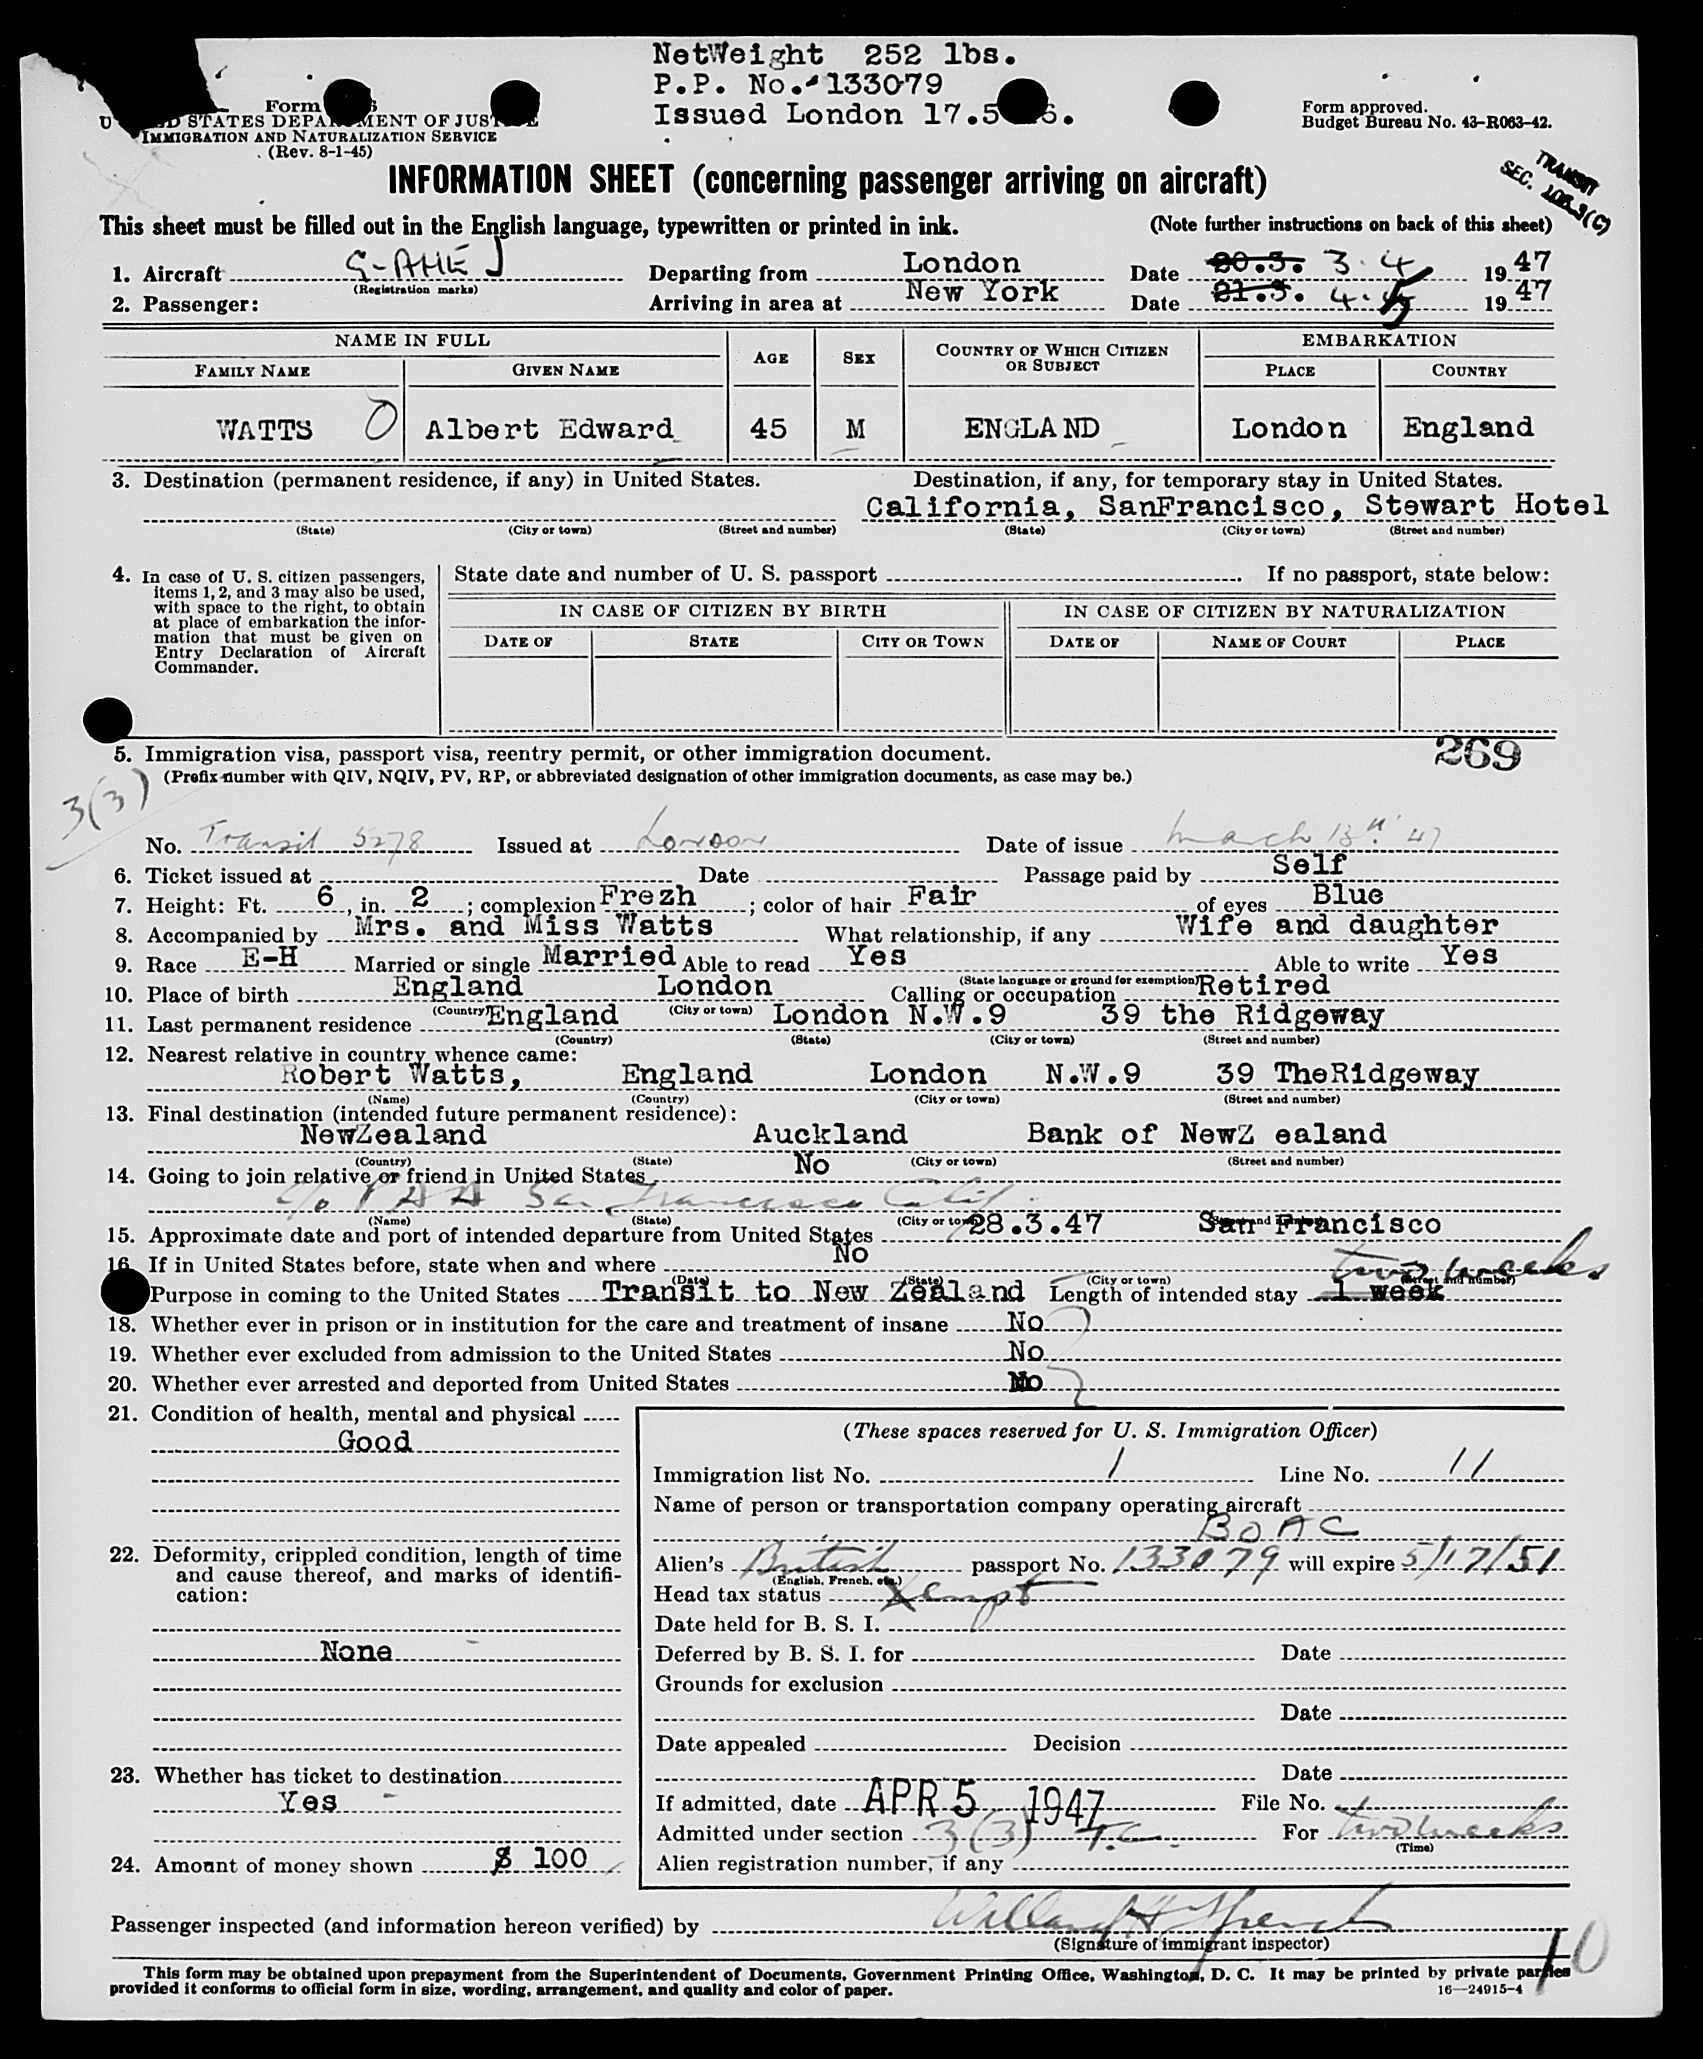 NetWeight 252 lbs.
P.P. No. 133079
Issued London 17.5
Form
STATES DEPARTMENT OF JUSTICE
IMMIGRATION AND NATURALIZATION SERVICE
(Rev. 8-1-45)
Form approved.
Budget Bureau No. 43-R063-42.
TRANSIT
SEC.
INFORMATION SHEET (concerning passenger arriving on aircraft)
This sheet must be filled out in the English language, typewritten or printed in ink. (Note further instructions on back of this sheet)
1. Aircraft G-AHEJ Departing from London Date 20.3. 3.4 19 47
(Registration marks)
2. Passenger: Arriving in area at New York Date 21.3. 4. 5 19 47
NAME IN FULL AGE SEX COUNTRY OF WHICH CITIZEN OR SUBJECT EMBARKATION
FAMILY NAME GIVEN NAME PLACE COUNTRY
WATTS Albert Edward 45 M ENGLAND London England
3. Destination (permanent residence, if any) in United States. Destination, if any, for temporary stay in United States.
California, SanFrancisco, Stewart Hotel
(State) (City or town) (Street and number) (State) (City or town) (Street and number)
4. In case of U. S. citizen passengers, items 1, 2, and 3 may also be used, with space to the right, to obtain at place of embarkation the information that must be given on Entry Declaration of Aircraft Commander.
State date and number of U. S. passport . If no passport, state below:
IN CASE OF CITIZEN BY BIRTH IN CASE OF CITIZEN BY NATURALIZATION
DATE OF STATE CITY OR TOWN DATE OF NAME OF COURT PLACE
269
5. Immigration visa, passport visa, reentry permit, or other immigration document.
(Prefix number with QIV, NQIV, PV, RP, or abbreviated designation of other immigration documents, as case may be.)
3(3)
No. Transit 5278 Issued at London Date of issue March 13th 47
6. Ticket issued at Date Passage paid by Self
7. Height: Ft. 6, in. 2; complexion Frezh; color of hair Fair of eyes Blue
8. Accompanied by Mrs. and Miss Watts What relationship, if any Wife and daughter
9. Race E-H Married or single Married Able to read Yes Able to write Yes
(State language or ground for exemption)
10. Place of birth England London Calling or occupation Retired
(Country) (City or town)
11. Last permanent residence England London N.W.9 39 the Ridgeway
(Country) (State) (City or town) (Street and number)
12. Nearest relative in country whence came:
Robert Watts, England London N.W.9 39 TheRidgeway
(Name) (Country) (City or town) (Street and number)
13. Final destination (intended future permanent residence):
NewZealand Auckland Bank of NewZ ealand
(Country) (State) (City or town) (Street and number)
14. Going to join relative or friend in United States No
c/o PAA San Francisco Calif.
(Name) (State) (City or town) (Street and number)
15. Approximate date and port of intended departure from United States 28.3.47 San Francisco
16. If in United States before, state when and where No
(Date) (State) (City or town) (Street and number)
two weeks
Purpose in coming to the United States Transit to New Zealand Length of intended stay 1 week
18. Whether ever in prison or in institution for the care and treatment of insane No
19. Whether ever excluded from admission to the United States No
20. Whether ever arrested and deported from United States No
21. Condition of health, mental and physical
Good
22. Deformity, crippled condition, length of time and cause thereof, and marks of identification:
None
23. Whether has ticket to destination
Yes
24. Amount of money shown $ 100
(These spaces reserved for U. S. Immigration Officer)
Immigration list No. 1 Line No. 11
Name of person or transportation company operating aircraft
BOAC
Alien's British passport No. 133079 will expire 5/17/51
(English, French, etc.)
Head tax status Xempt
Date held for B. S. I.
Deferred by B. S. I. for Date
Grounds for exclusion
Date
Date appealed Decision
Date
If admitted, date APR 5 1947 File No.
Admitted under section 3(3) T.C. For two weeks
(Time)
Alien registration number, if any
Passenger inspected (and information hereon verified) by
(Signature of immigrant inspector)
10
This form may be obtained upon prepayment from the Superintendent of Documents, Government Printing Office, Washington, D. C. It may be printed by private parties
provided it conforms to official form in size, wording, arrangement, and quality and color of paper. 16—24915-4